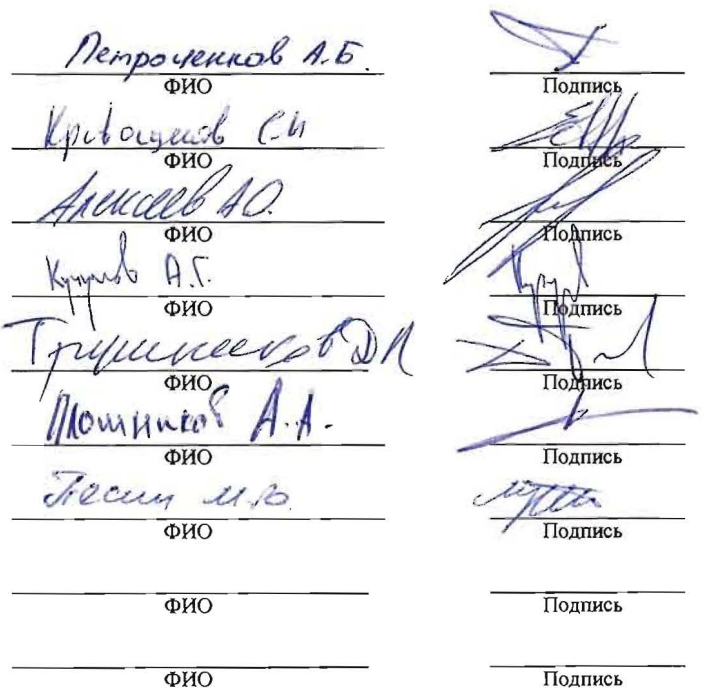 Петроченков А.Б.
ФИО Подпись
Кривощеков С.И
ФИО Подпись
Алексеев А.О.
ФИО Подпись
А.Г.
ФИО Подпись
Трушников Д.Н
ФИО Подпись
Плотников А.А.
ФИО Подпись
Песин М.Ю.
ФИО Подпись
ФИО Подпись
ФИО Подпись